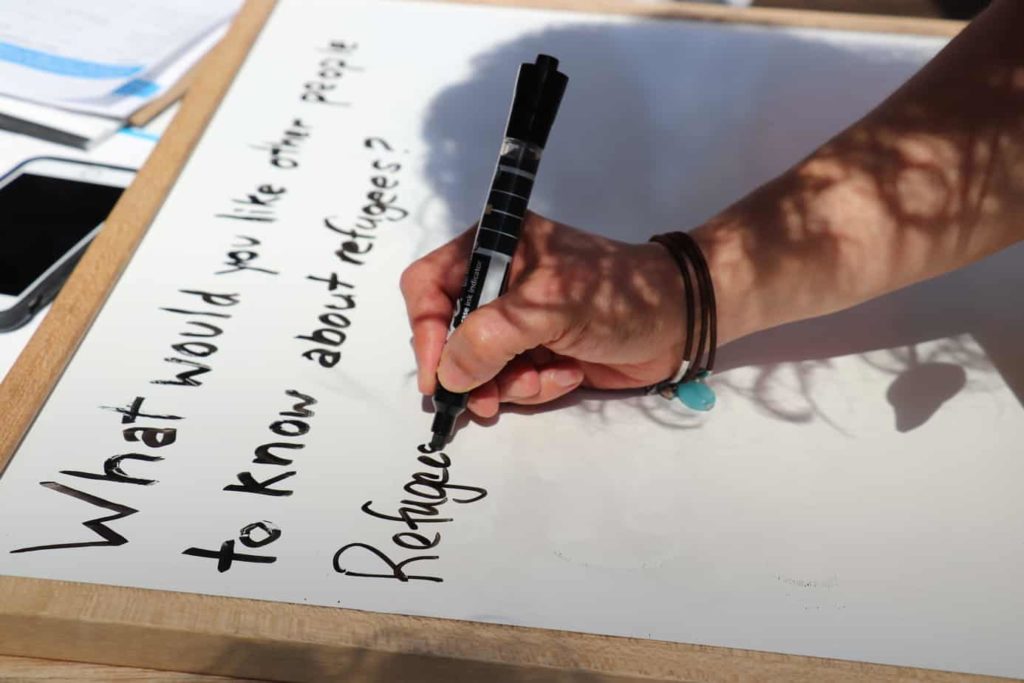 What would you like other people
to know about refugees?
Refugees
ink indicator